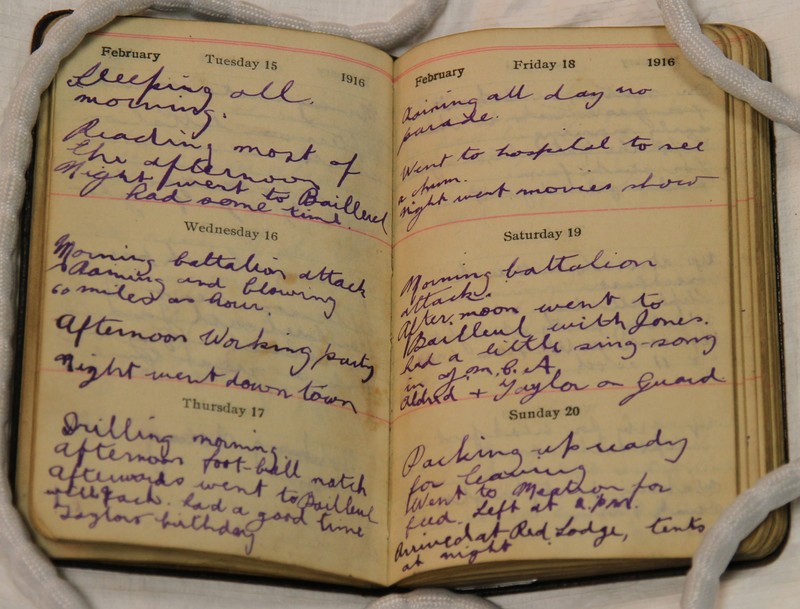 February Tuesday 15 1916
Sleeping all
morning.
Reading most of
the afternoon
Night went to Bailleul
had some time.
Wednesday 16
Morning battalion attack
Raining and blowing
60 miles as hour.
Afternoon Working party
night went down town
Thursday 17
Drilling morning
afternoon foot-ball match
Afterwards went to Bailleul
with Jack. had a good time
Taylors birthday
February Friday 18 1916
Raining all day no
parade.
Went to hospital to see
a chum.
night went movies show
Saturday 19
Morning battalion
attack.
After.noon went to
Bailleul with Jones.
had a little sing-song
in Y.M.C.A
Aldred + Taylor on Guard
Sunday 20
Packing up ready
for leaving
Went to for
feed. Left at 2.P.M.
Arrived at Red Lodge, tents
at night